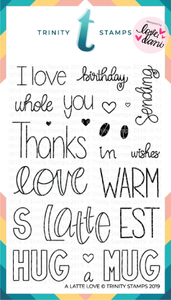 TRINITY STAMPS
t
latte
dani
I love birthday
Sending
whole you
Thanks in wishes
love WARM
S Latte EST
HUG a MUG
A LATTE LOVE © TRINITY STAMPS 2019